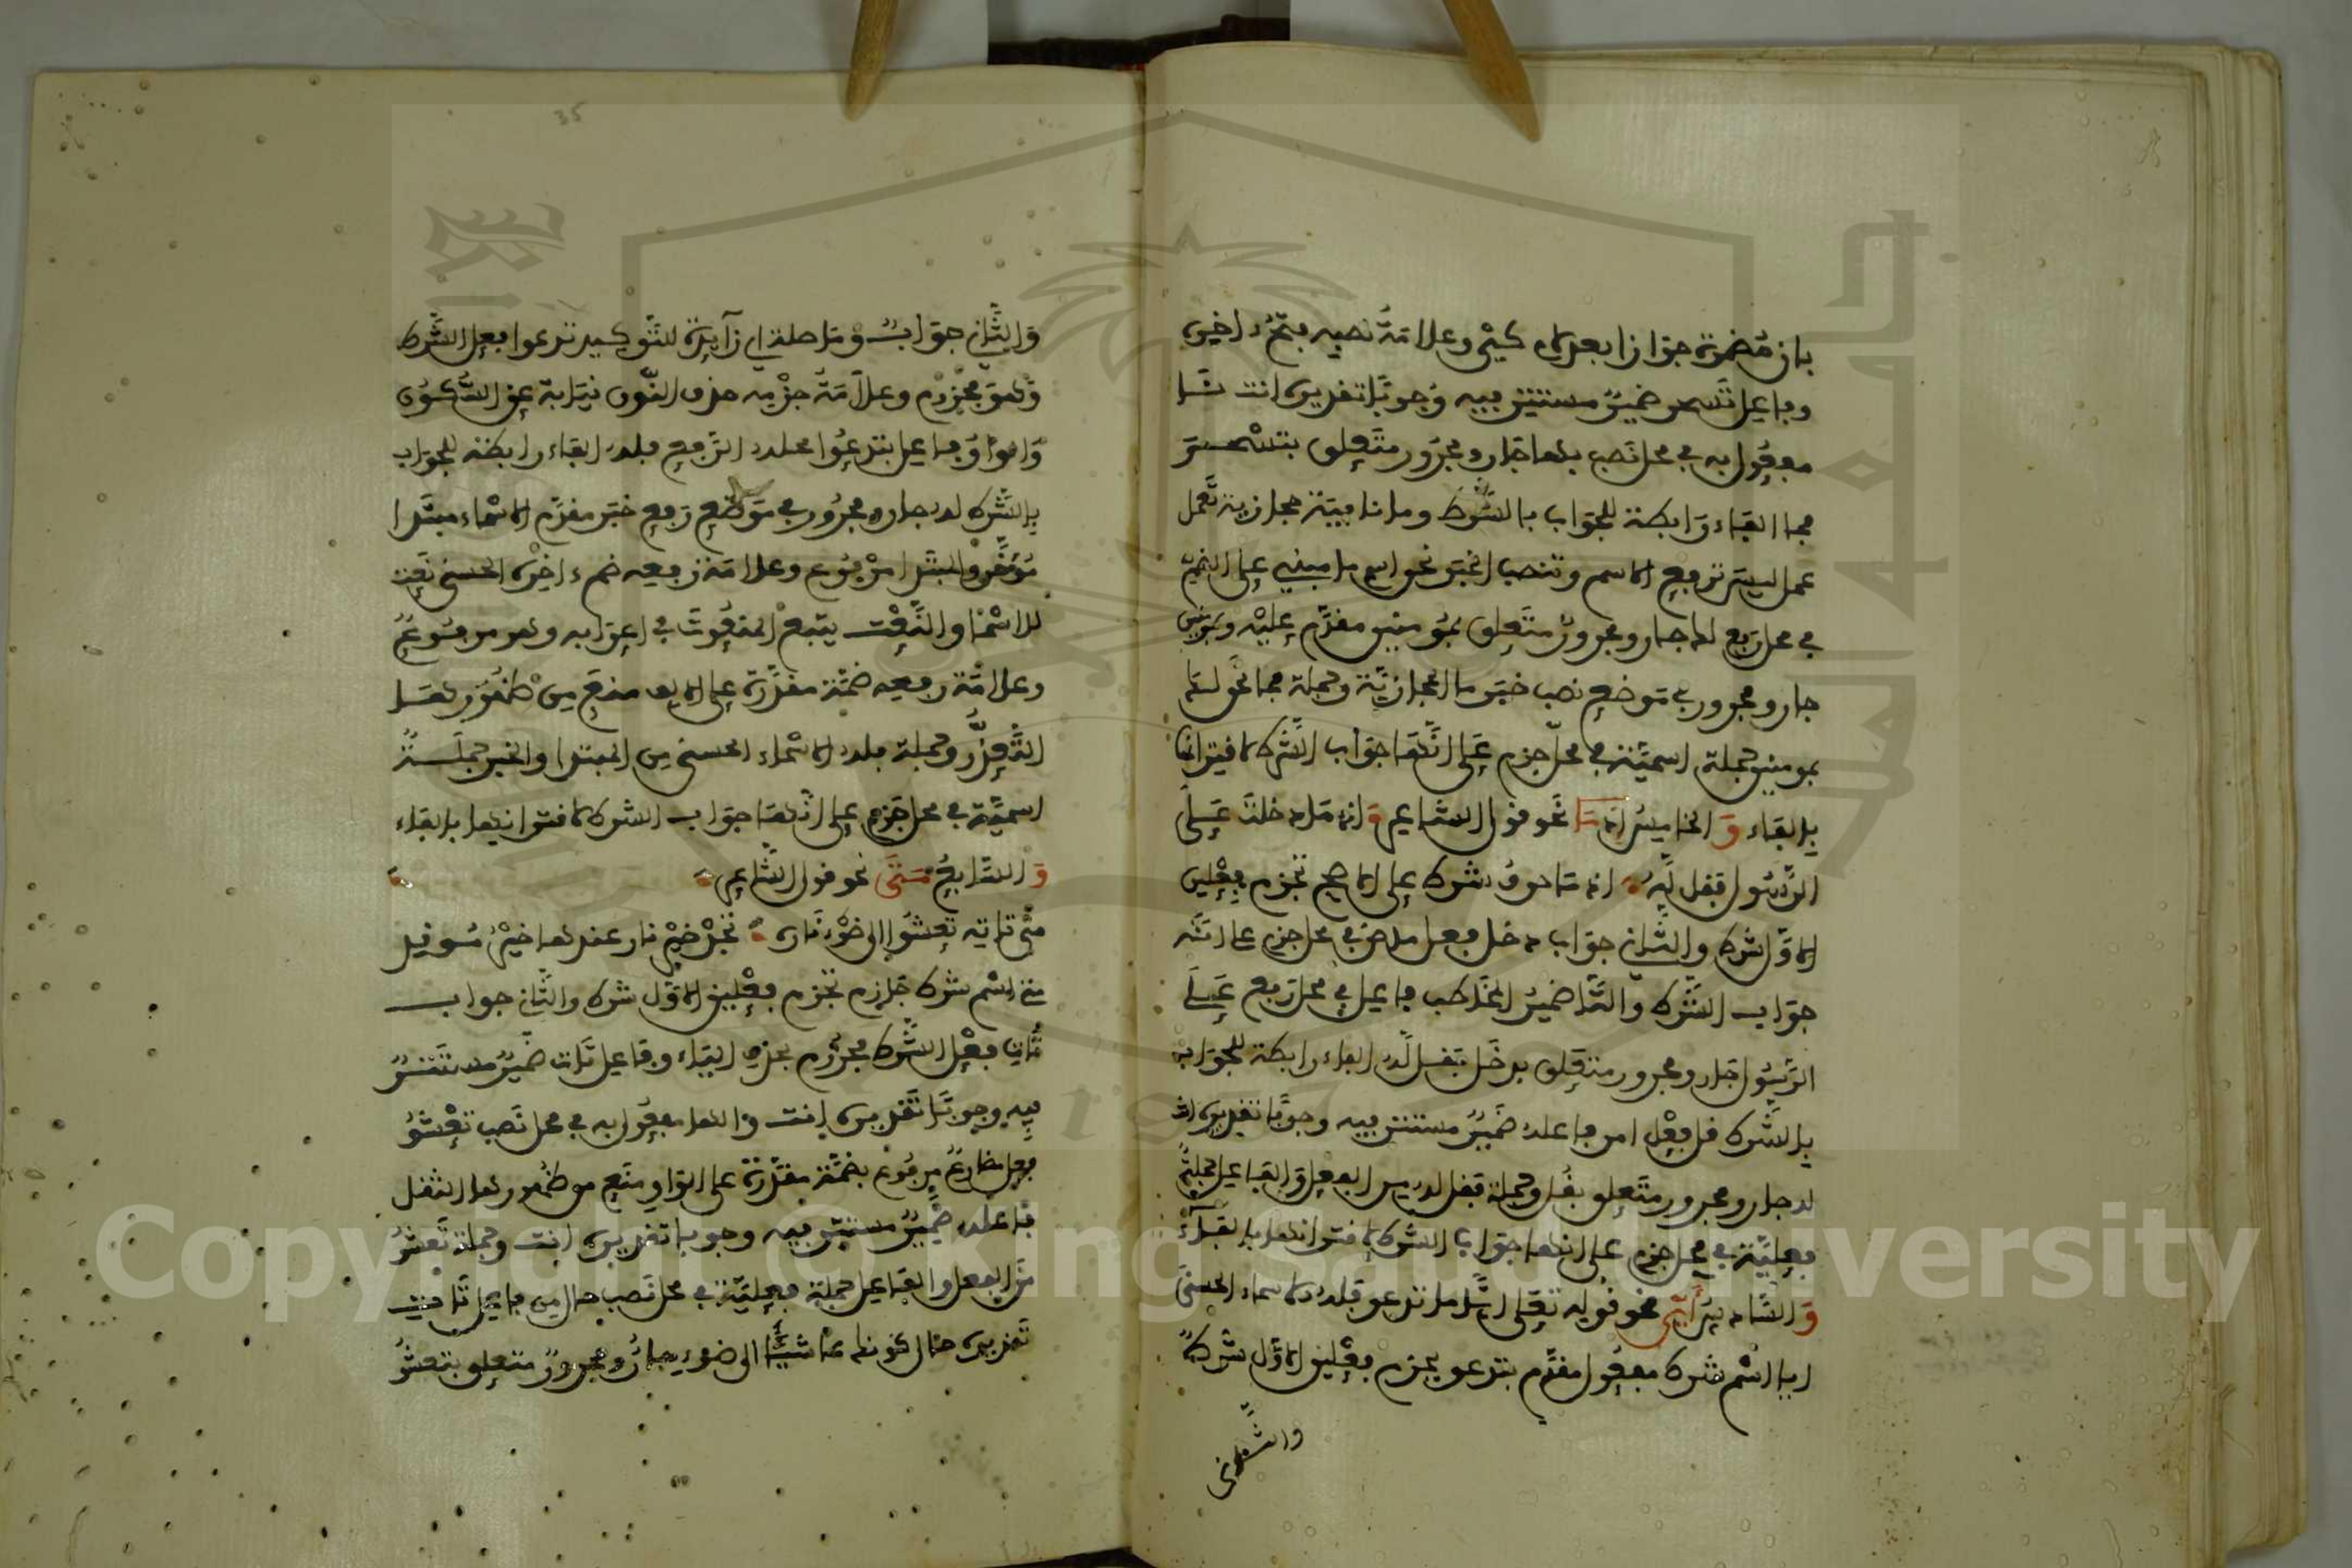 بان مضمرة جوازا بعد لام كي وعلامة نصبه فتح ءاخره
وفاعل تسحر ضمير مستتر فيه وجوبا تقديره انت نا
مفعول به في محل نصب بها جار ومجرور متعلق بتسحر
فما الفاء رابطة للجواب بالشرط وما نافية حجازية تعمل
عمل ليس ترفع الاسم وتنصب الخبر نحن اسم ما مبني على الضم
في محل رفع لك جار ومجرور متعلق بمومنين مقدم عليه وبمومنين
جار ومجرور في موضع نصب خبر ما الحجازية وجملة فما نحن لك
بمومنين جملة اسمية في محل جزم على انها جواب الشرط لاقترانها
بالفاء والخامس اذما نحو قول الشاعر واذ ما دخلت على
الرسول فقل له اذ ما حرف شرط على الاصح تجزم فعلين
الاول شرط والثاني جواب دخل فعل ماض في محل جزم على انه
جواب الشرط والتا ضمير المخاطب فاعل في محل رفع على
الرسول جار ومجرور متعلق بدخل فقل له الفاء رابطة للجواب
بالشرط قل فعل امر فاعله ضمير مستتر فيه وجوبا تقديره انت
له جار ومجرور متعلق بقل وجملة فقل له من الفعل والفاعل جملة
فعلية في محل جزم على انها جواب الشرط لاقترانها بالفاء
والسادس أي نحو قوله تعلى ايا ما تدعوا فله الاسماء الحسنى
ايا اسم شرط مفعول مقدم بتدعو يجزم فعلين الاول شرط
والثاني
35
والثاني جواب وما صلة اي زآيدة للتوكيد تدعوا فعل الشرط
وهو مجزوم وعلامة جزمه حذف النون نيابة عن السكون
والواو فاعل بتدعوا محله الرفع فله الفاء رابطة للجواب
بالشرط له جار ومجرور في موضع رفع خبر مقدم الاسماء مبتدا
مؤخر والمبتدا مرفوع وعلامة رفعه ضم ءاخره الحسنى نعت
للاسما والنعت يتبع المنعوت في اعرابه وهو مرفوع
وعلامة رفعه ضمة مقدرة على الالف منع من ظهورها
التعذر وجملة فله الاسماء الحسنى من المبتدا والخبر جملة
اسمية في محل جزم على انها جواب الشرط لاقترانها بالفاء
والسابع متى نحو قول الشاعر
متى تاته تعشوا الى ضوء ناره تجد خير نار عندها خير موقد
متى اسم شرط جازم تجزم فعلين الاول شرط والثاني جواب
تات فعل الشرط مجزوم بحذف الياء وفاعل تات ضمير مستتر
فيه وجوبا تقديره انت والها مفعول به في محل نصب تعشو
فعل مضارع مرفوع بضمة مقدرة على الواو منع من ظهورها الثقل
فاعله ضمير مستتر فيه وجوبا تقديره انت وجملة تعشو
من الفعل والفاعل جملة فعلية في محل نصب حال من فاعل تات
تقديره حال كونك عاشيًا الى ضوء جار ومجرور متعلق بتعشو
Copyright © King Saud University